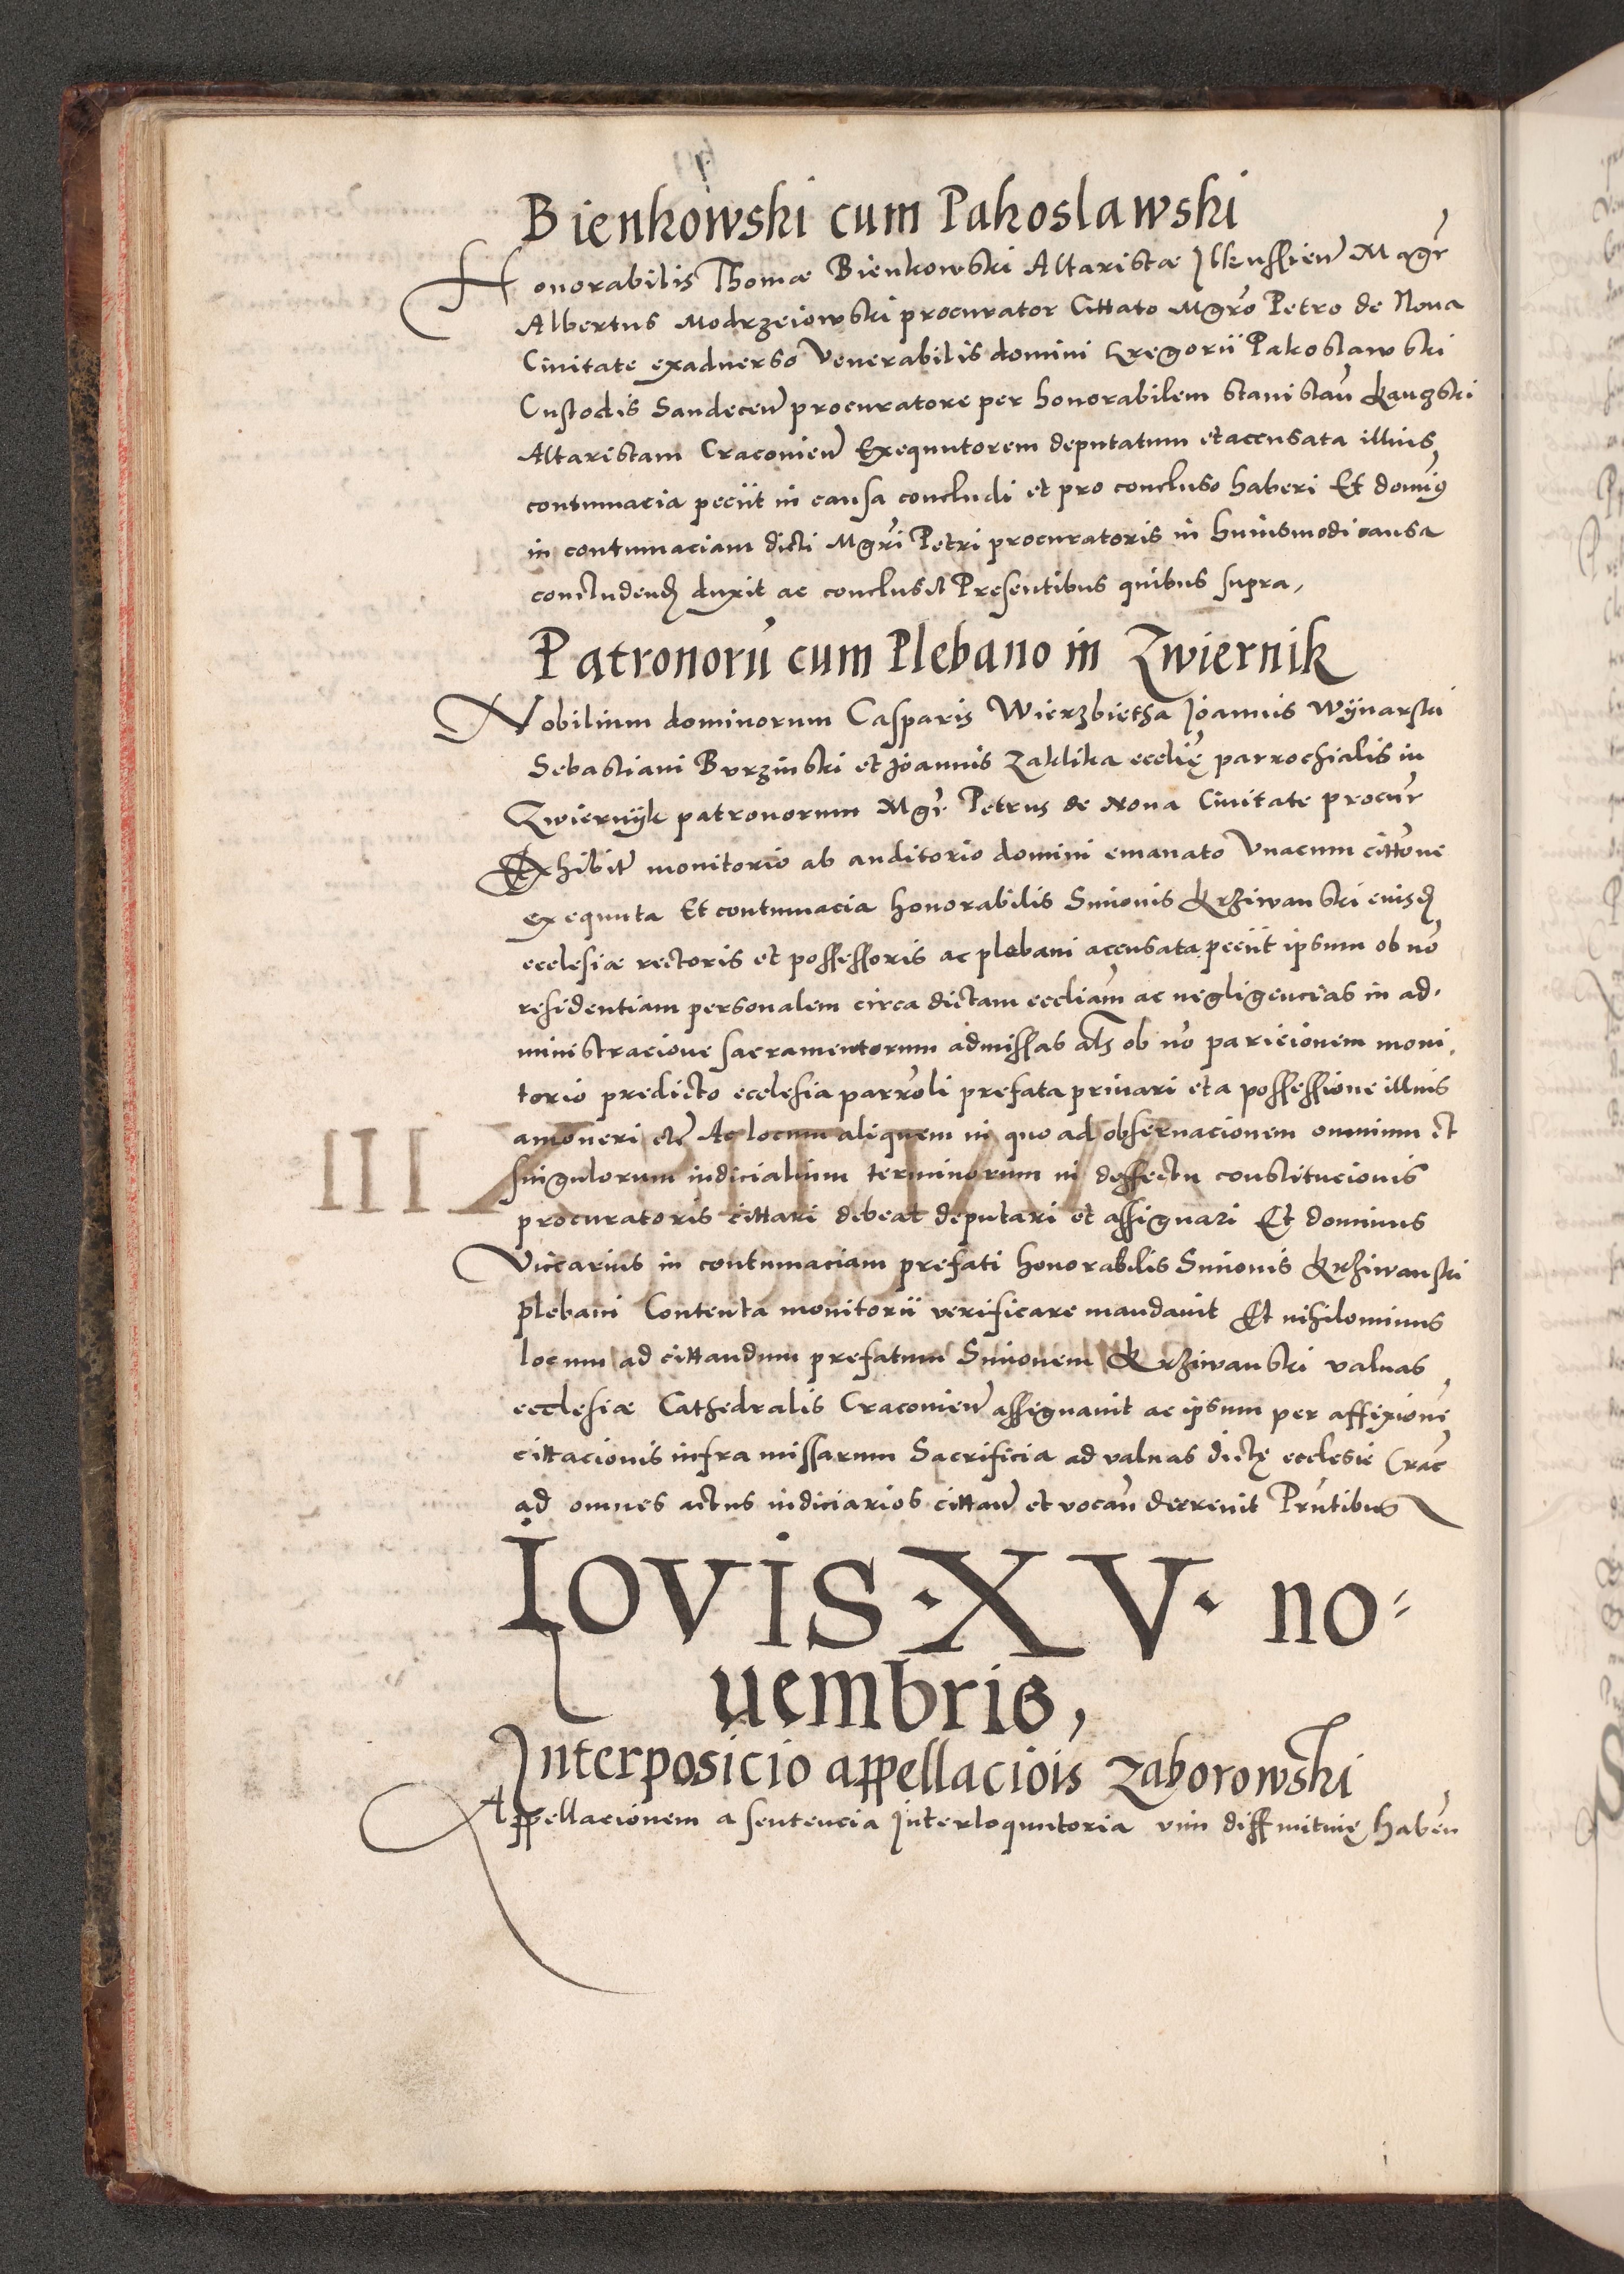 Bienkowski cum Pakoslawski
Honorabilis Thomæ Bienkowski Altaristæ Ilkussien̄ Magr̄
Albertus Modrzeiowski procurator Cittato Mgr̄o Petro de Noua
Ciuitate exaduerso Venerabilis domini Gregorii Pakoslawski
Custodis Sandecen̄ procuratore per honorabilem Stanislau̅
Altaristam Cracouien̄ Exequutorem deputatum et accusata illius
contumacia peciit in causa concludi et pro concluso haberi Et domin9
in contumaciam dicti Mgr̄i Petri procuratoris in huiusmodi causa
concludend̄ duxit ac conclusit Presentibus quibus supra,
Patronoru̅ cum Plebano in Zwiernik
Nobilium dominorum Casparis Wierzbietha Joannis Wÿnarski
Sebastiani Burzinski et Joannis Zaklika ecclię parrochialis in
Zwiernÿk patronorum Mgr̄ Petrus de Noua Ciuitate procur̄
Exhibit̄ monitorio ab auditorio domini emanato Vnacum citto̅ne
exequuta Et contumacia honorabilis Simonis Krziwanski eiusd̄
ecclesiæ rectoris et possessoris ac plebani accusata peciit ipsum ob no̅
residentiam personalem circa dictam eccliam̄ ac negligencias in ad-
ministracione sacramentorum admissas als̄ ob no̅ paricionem moni,
torio predicto ecclesia parro̅li prefata priuari et a possessione illius
amoueri etc̄ Ac locum aliquem in quo ad obseruacionem omnium et
singulorum iudicialium terminorum in deffectu constitucionis
procuratoris cittari debeat deputari et assignari Et dominus
Viccarius in contumaciam prefati honorabilis Simonis Krziwanski
plebani Contenta monitorii verificare mandauit Et nihilominus
locum ad cittandum prefatum Simonem Krziwanski valuas
ecclesiæ Cathedralis Cracouien̄ assignauit ac ipsum per affixione̅
cittacionis infra missarum Sacrificia ad valuas dictę ecclesie Crac̄
ad omnes actus iudiciarios cittan̄ et vocan̄ decreuit Prn̄tibus
IOVIS·XV· no-
uembris,
Interposicio appellaciois̅ Zaborowski
Appellacionem a sentencia Interloquutoria vim diffinitiuę haben̄